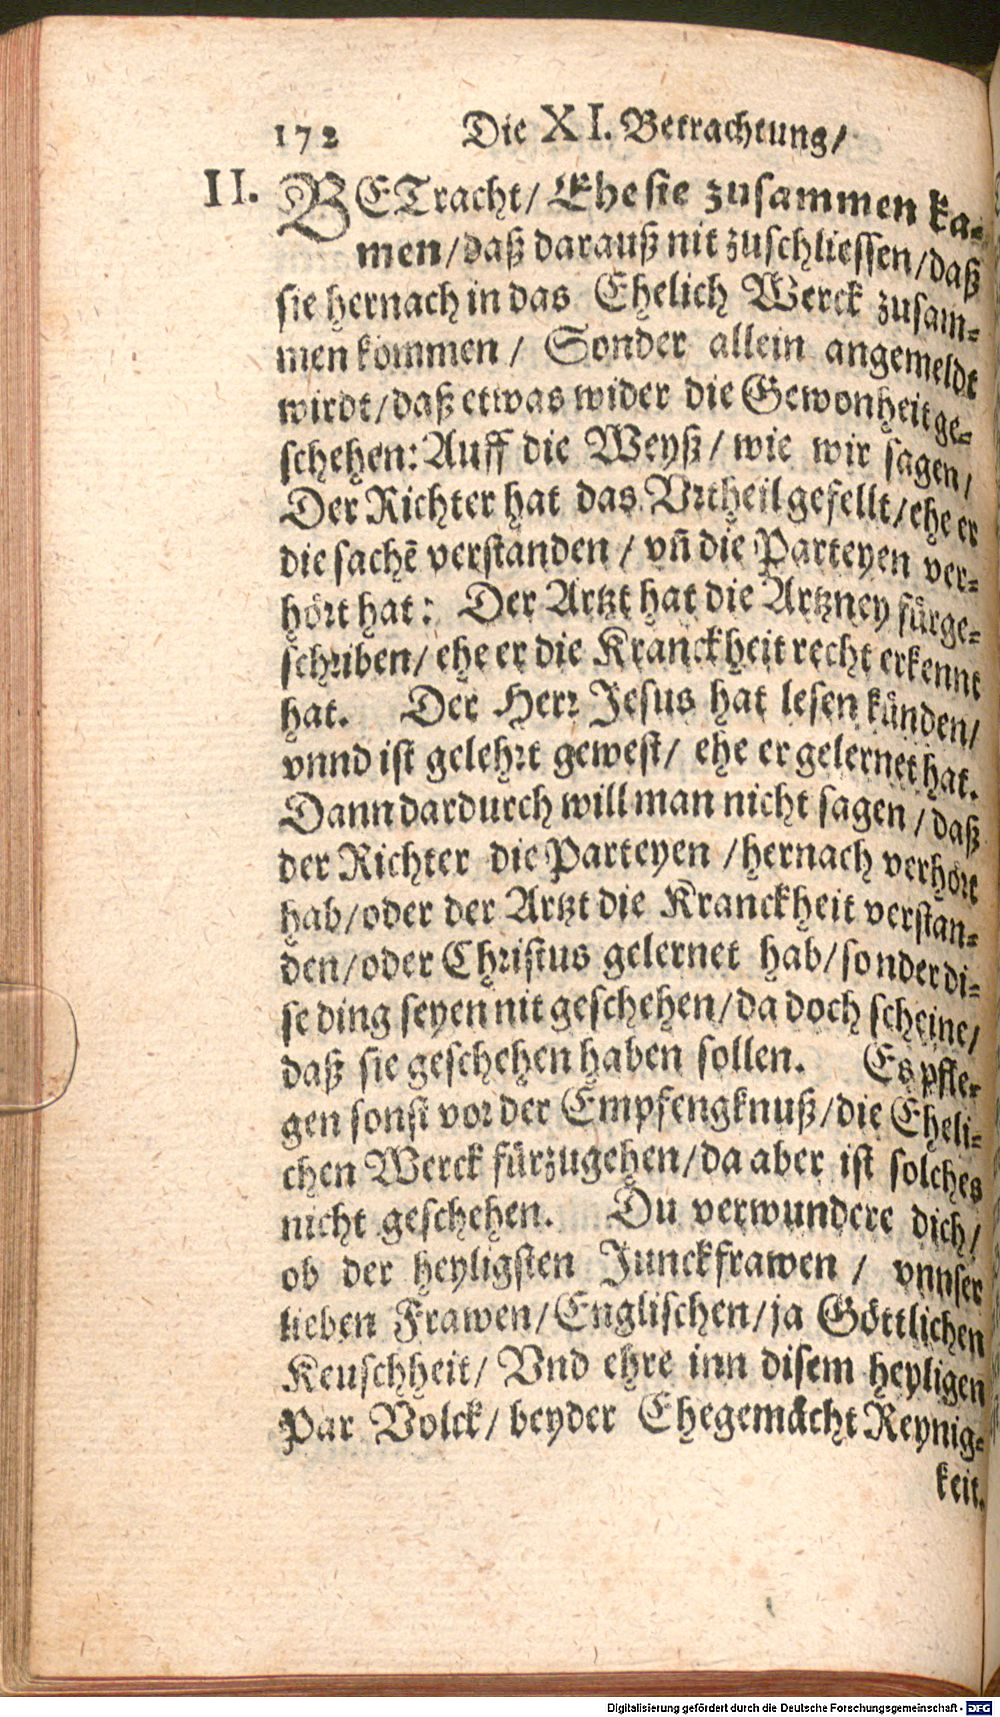 172 Die XI. Betrachtung/
II. BETracht/ Ehe sie zusammen ka-
men/daß darauß nit zuschliessen/daß
sie hernach in das Ehelich Werck zusam-
men kommen / Sonder allein angemeldt
wirdt/daß etwas wider die Gewonheit ge-
schehen: Auff die Weyß/ wie wir sagen/
Der Richter hat das Vrtheil gefellt/ehe er
die sachē verstanden / vñ die Parteyen ver-
hört hat: Der Artzt hat die Artzney fürge-
schriben/ ehe er die Kranckheit recht erkennt
hat. Der Herr Jesus hat lesen künden/
vnnd ist gelehrt gewest/ ehe er gelernet hat.
Dann dardurch will man nicht sagen / daß
der Richter die Parteyen /hernach verhört
hab/oder der Artzt die Kranckheit verstan-
den/oder Christus gelernet hab/sonder di-
se ding seyen nit geschehen/da doch scheine/
daß sie geschehen haben sollen. Es pfle-
gen sonst vor der Empfengknuß/die Eheli-
chen Werck fürzugehen/da aber ist solches
nicht geschehen. Du verwundere dich/
ob der heyligsten Junckfrawen / vnnser
lieben Frawen/Englischen/ja Göttlichen
Keuschheit/ Vnd ehre inn disem heyligen
Par Volck/ beyder Ehegemächt Reynig-
keit.
Digitalisierung gefördert durch die Deutsche Forschungsgemeinschaft - DFG